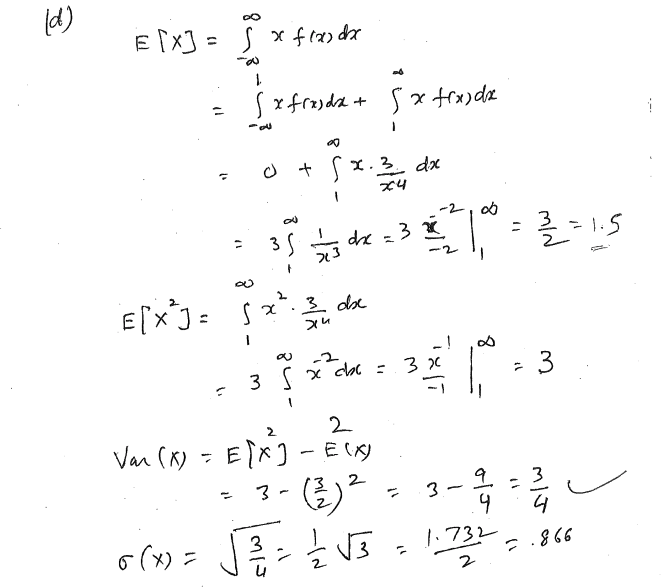 (d)
E[X] = ∫_{-∞}^{∞} x f(x) dx
= ∫_{-∞}^{1} x f(x) dx + ∫_{1}^{∞} x f(x) dx
= 0 + ∫_{1}^{∞} x . 3/x^4 dx
= 3 ∫_{1}^{∞} 1/x^3 dx = 3 x^{-2}/-2 |_{1}^{∞} = 3/2 = 1.5
E[X^2] = ∫_{1}^{∞} x^2 . 3/x^4 dx
= 3 ∫_{1}^{∞} x^{-2} dx = 3 x^{-1}/-1 |_{1}^{∞} = 3
Var(X) = E[X^2] - E^2(X)
= 3 - (3/2)^2 = 3 - 9/4 = 3/4 ✓
σ(x) = √(3/4) = 1/2 √3 = 1.732/2 = .866